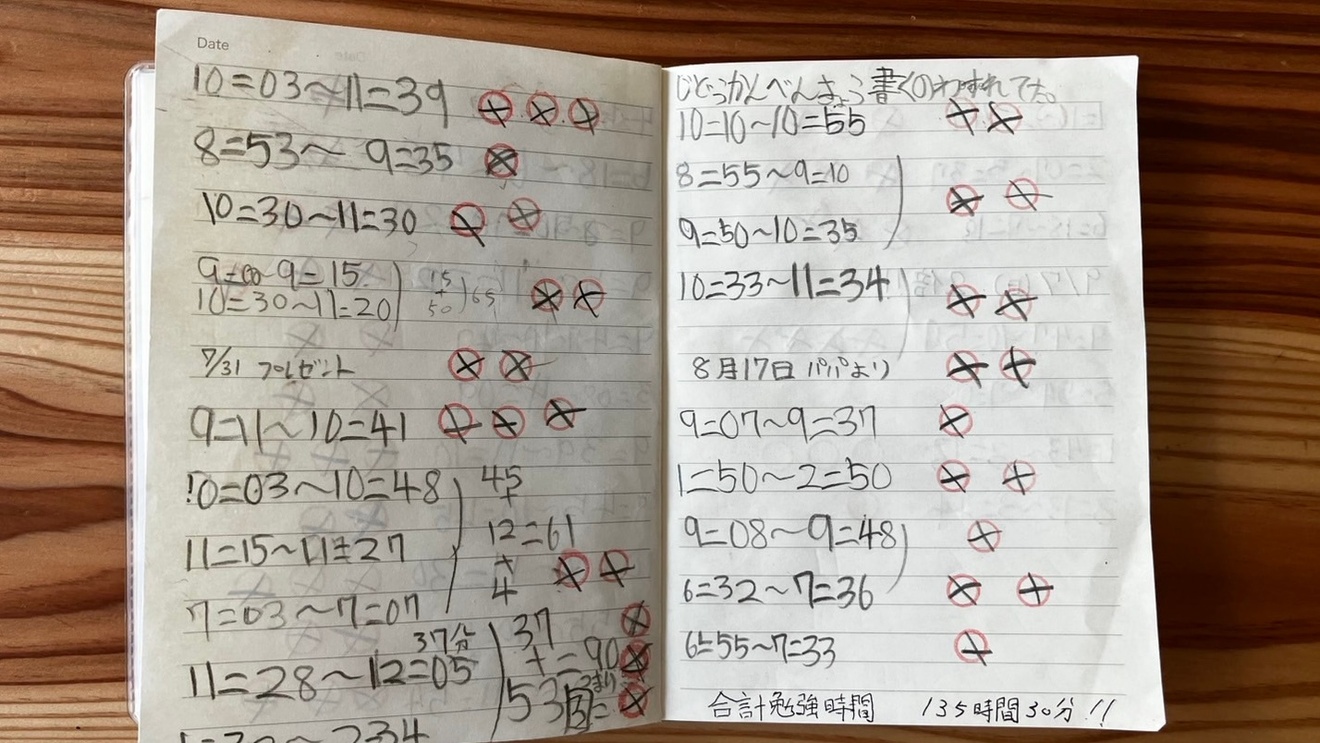 Date
10=03～11=39
8=53～ 9=35
10=30～11=30
9=00～9=15
10=30～11=20
15
+
50
65
7/31 プレゼント
9=11～10=41
10=03～10=48
45
+
11=15～11=27
12=61
+
4
7=03～7=07
37分
11=28～12=05
37
+=90
53
じどうかんべんきょう書くのわすれてた。
10=10～10=55
8=55～9=10
9=50～10=35
10=33～11=34
8月17日 パパより
9=07～9=37
1=50～2=50
9=08～9=48
6=32～7=36
6=55～7=33
合計勉強時間 135時間30分!!